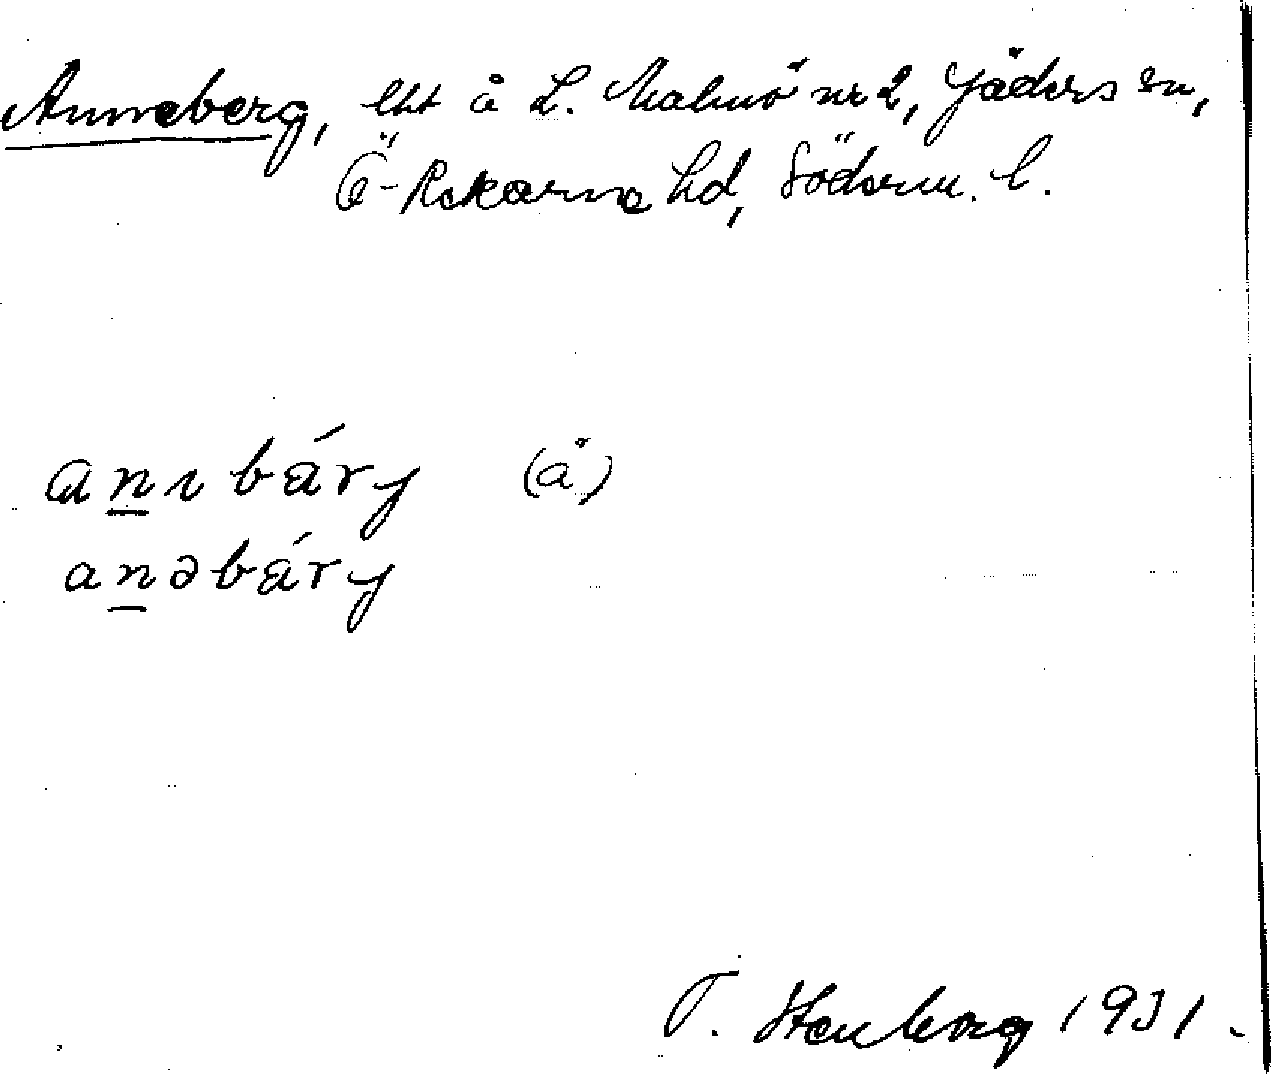 Anneberg, lht å L. Malmö nr 2, Jäders sn,
Ö-Rekarne hd, Söderm. l.
anıbáry (å)
anəbáry
T. Stenborg 1931.